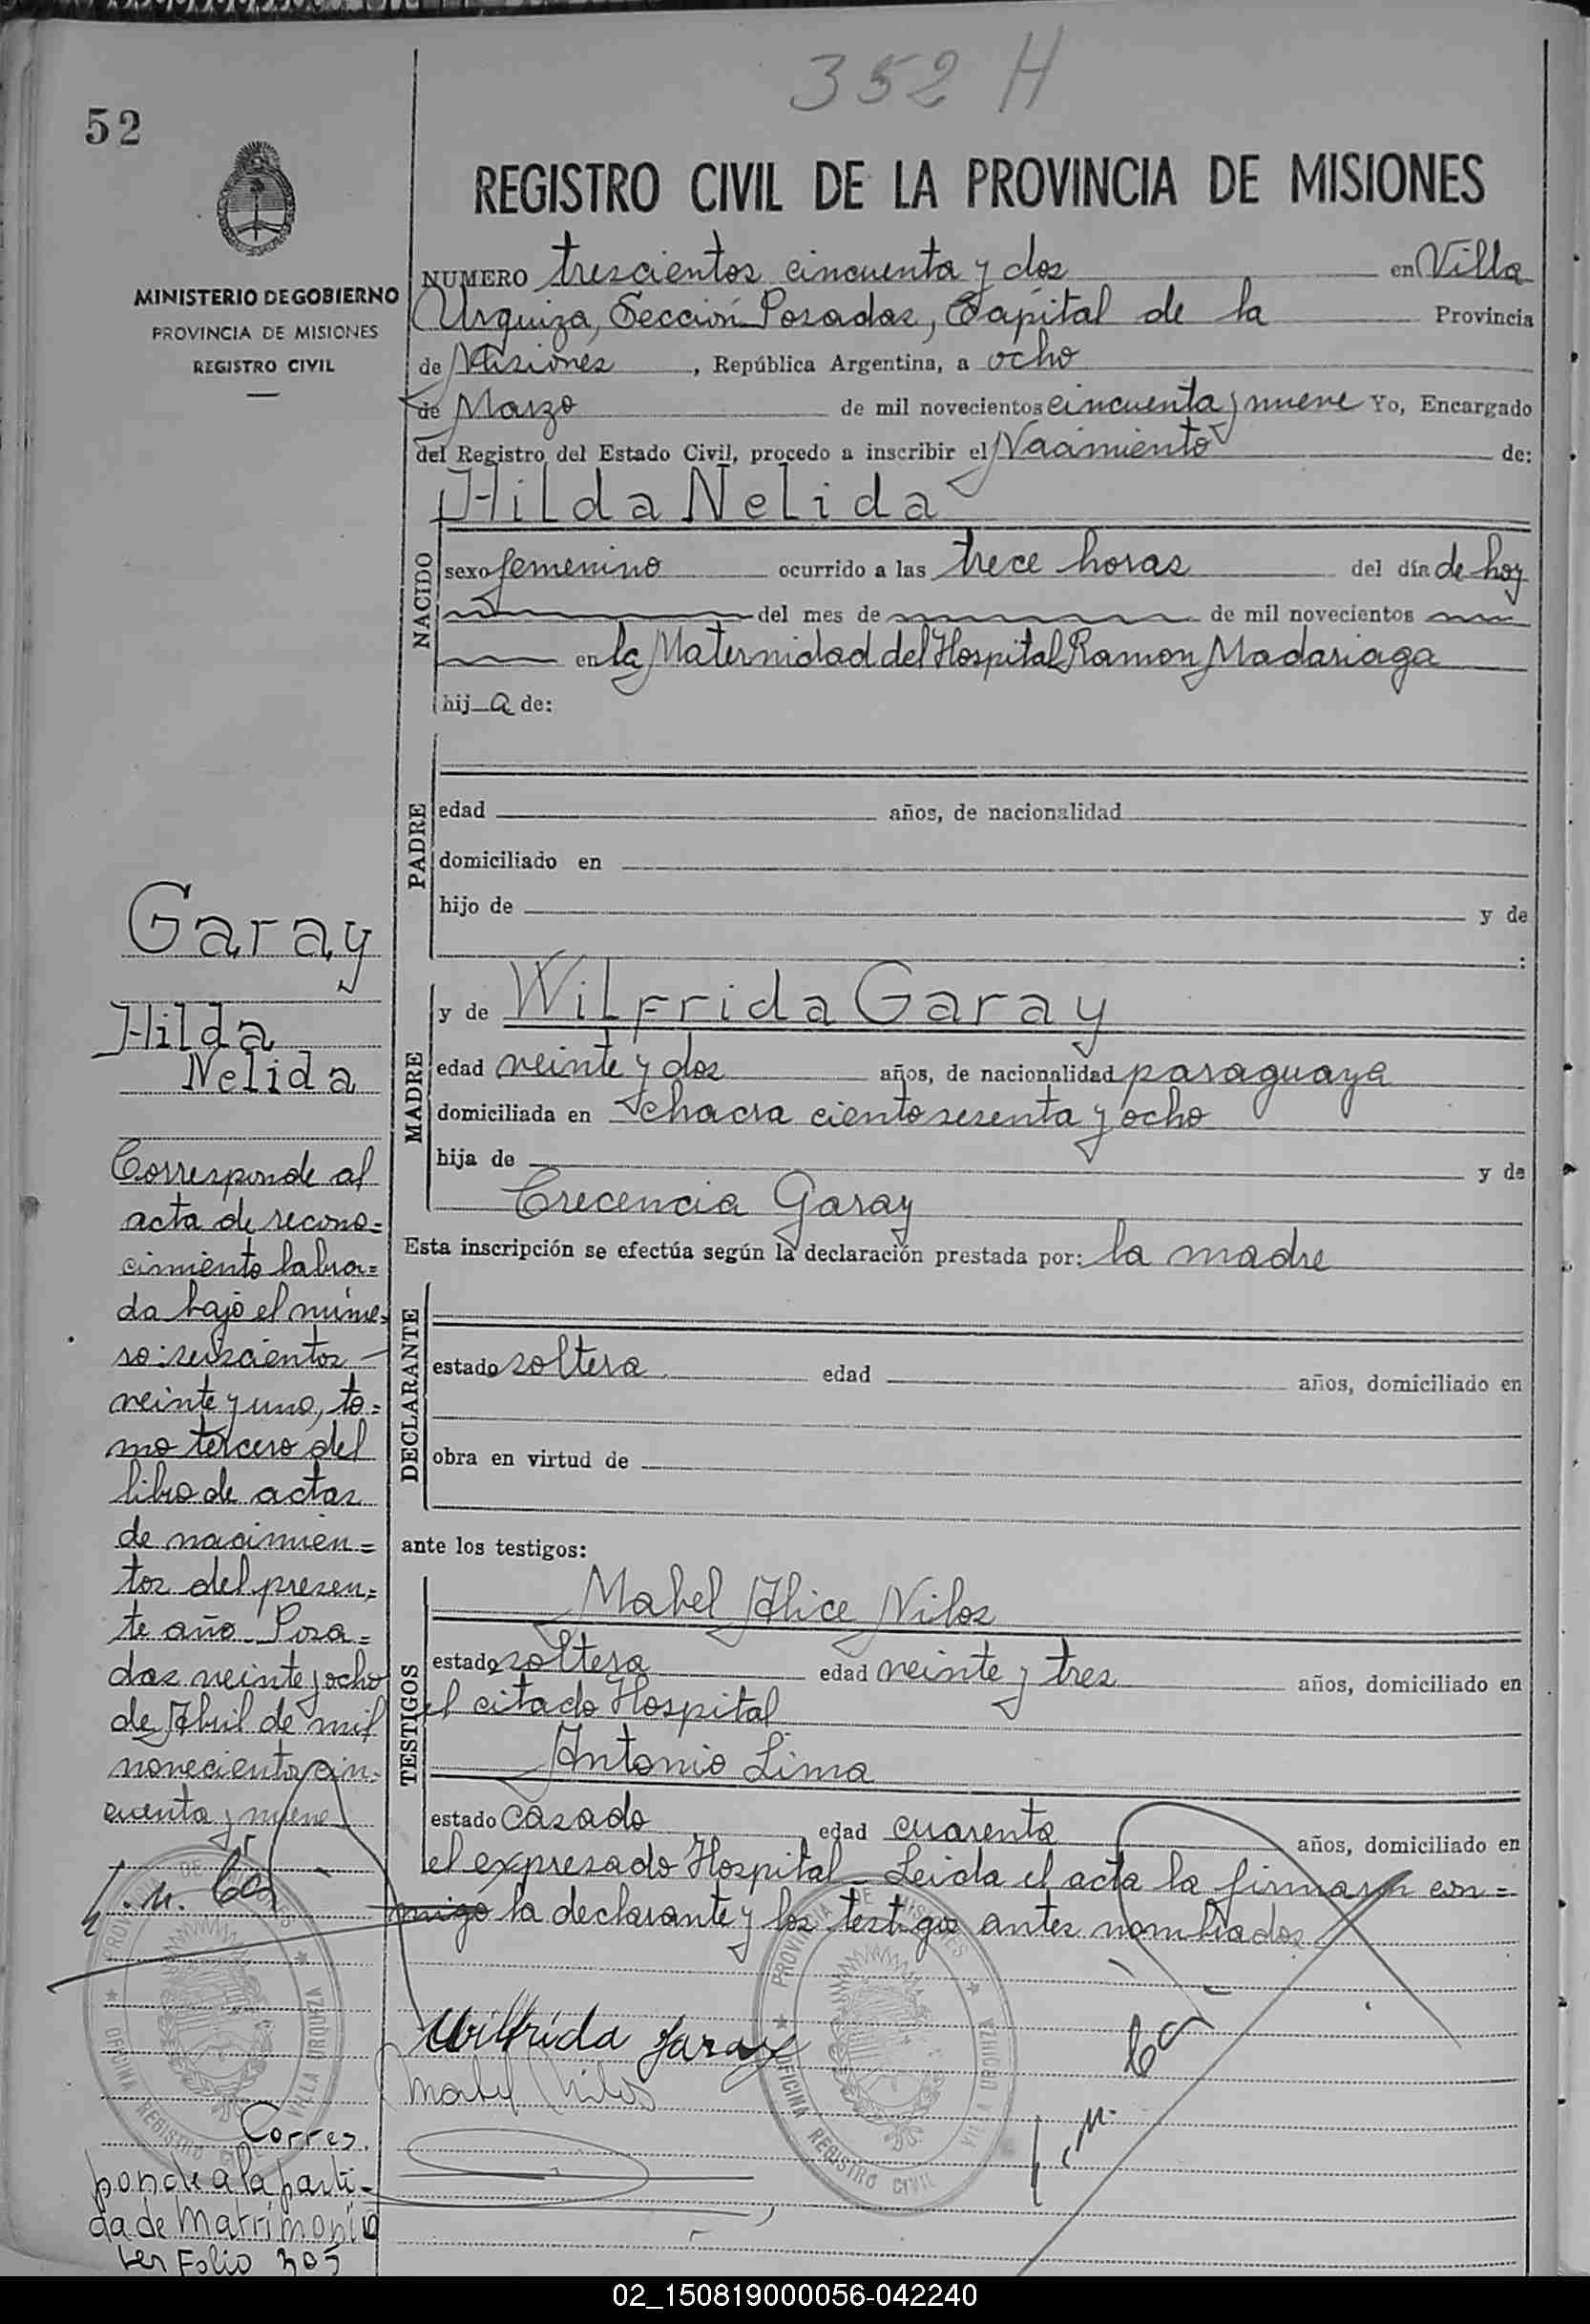 352 H
52
REGISTRO CIVIL DE LA PROVINCIA DE MISIONES
MINISTERIO DE GOBIERNO
PROVINCIA DE MISIONES
REGISTRO CIVIL
NUMERO trescientos cincuenta y dos en Villa
Urquiza, Sección Posadas, Capital de la Provincia
de Misiones, República Argentina, a ocho
de Marzo de mil novecientos cincuenta y nueve Yo, Encargado
del Registro del Estado Civil, procedo a inscribir el Nacimiento de:
Hilda Nelida
NACIDO
sexo femenino ocurrido a las trece horas del día de hoy
del mes de de mil novecientos
en la Maternidad del Hospital Ramon Madariaga
hij a de:
PADRE
edad años, de nacionalidad
domiciliado en
hijo de y de
:
MADRE
y de Wilfrida Garay
edad veinte y dos años, de nacionalidad paraguaya
domiciliada en chacra ciento sesenta y ocho
hija de y de
Crecencia Garay
Esta inscripción se efectúa según la declaración prestada por: la madre
DECLARANTE
estado soltera edad años, domiciliado en
obra en virtud de
ante los testigos:
TESTIGOS
Mabel Alice Nilos
estado soltera edad veinte y tres años, domiciliado en
el citado Hospital
Antonio Lima
estado casado edad cuarenta años, domiciliado en
el expresado Hospital - Leida el acta la firmaron con=
migo la declarante y los testigos antes nombrados
Wilfrida Garay
Mabel Nilos
Garay
Hilda
Nelida
Corresponde al
acta de recono=
cimiento labra=
da bajo el núme=
ro: seiscientos
veinte y uno, to=
mo tercero del
libro de actas
de nacimien=
tos del presen=
te año. Posa=
das veinte y ocho
de Abril de mil
novecientos cin=
cuenta y nueve
PROVINCIA DE MISIONES
OFICINA REGISTRO CIVIL
VILLA URQUIZA
PROVINCIA DE MISIONES
OFICINA REGISTRO CIVIL
VILLA URQUIZA
Corres.
ponde a la parti-
da de Matrimonio
Folio 305
02_150819000056-042240